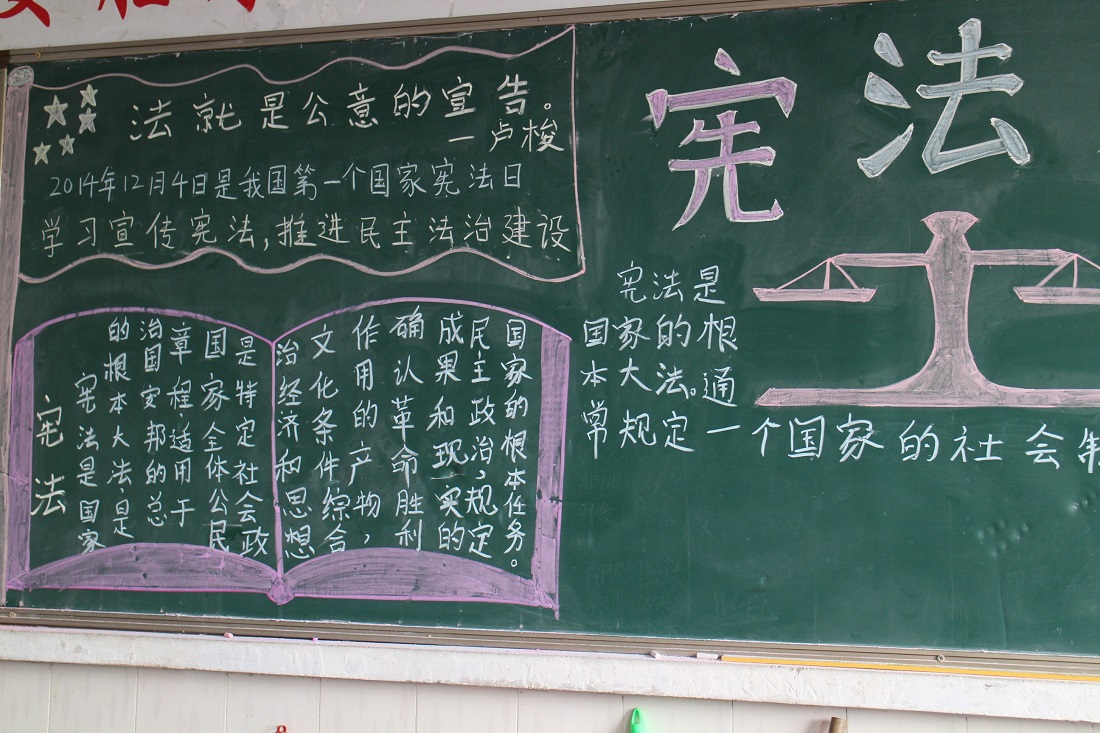 法就是公意的宣告。
—卢梭
2014年12月4日是我国第一个国家宪法日
学习宣传宪法,推进民主法治建设
宪法
宪法
宪法是国家
的根本大法,是
治国安邦的总
章程适用于
国家全体公民
是特定社会政
治经济和思想
文化条件综合
作用的产物,
确认革命胜利
成果和现实的
民主政治,规定
国家的根本任务。
宪法是
国家的根
本大法。通
常规定一个国家的社会制